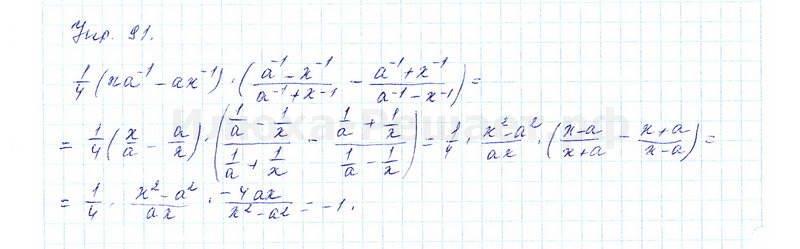 Упр. 91.
1/4 (xa⁻¹ − ax⁻¹) · ((a⁻¹ − x⁻¹)/(a⁻¹ + x⁻¹) − (a⁻¹ + x⁻¹)/(a⁻¹ − x⁻¹)) =
= 1/4 (x/a − a/x) · ((1/a − 1/x)/(1/a + 1/x) − (1/a + 1/x)/(1/a − 1/x)) = 1/4 · (x² − a²)/(ax) · ((x − a)/(x + a) − (x + a)/(x − a)) =
= 1/4 · (x² − a²)/(ax) · (−4ax)/(x² − a²) = −1.